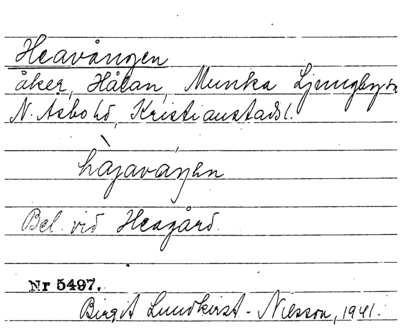 Heavången
åker, Hålan, Munka Ljungby sn
N. Åsbo hd, Kristianstads l.
hàjaváŋen
Bel. vid Heagård.
Nr 5497.
Birgit Lundkvist-Nilsson, 1941.